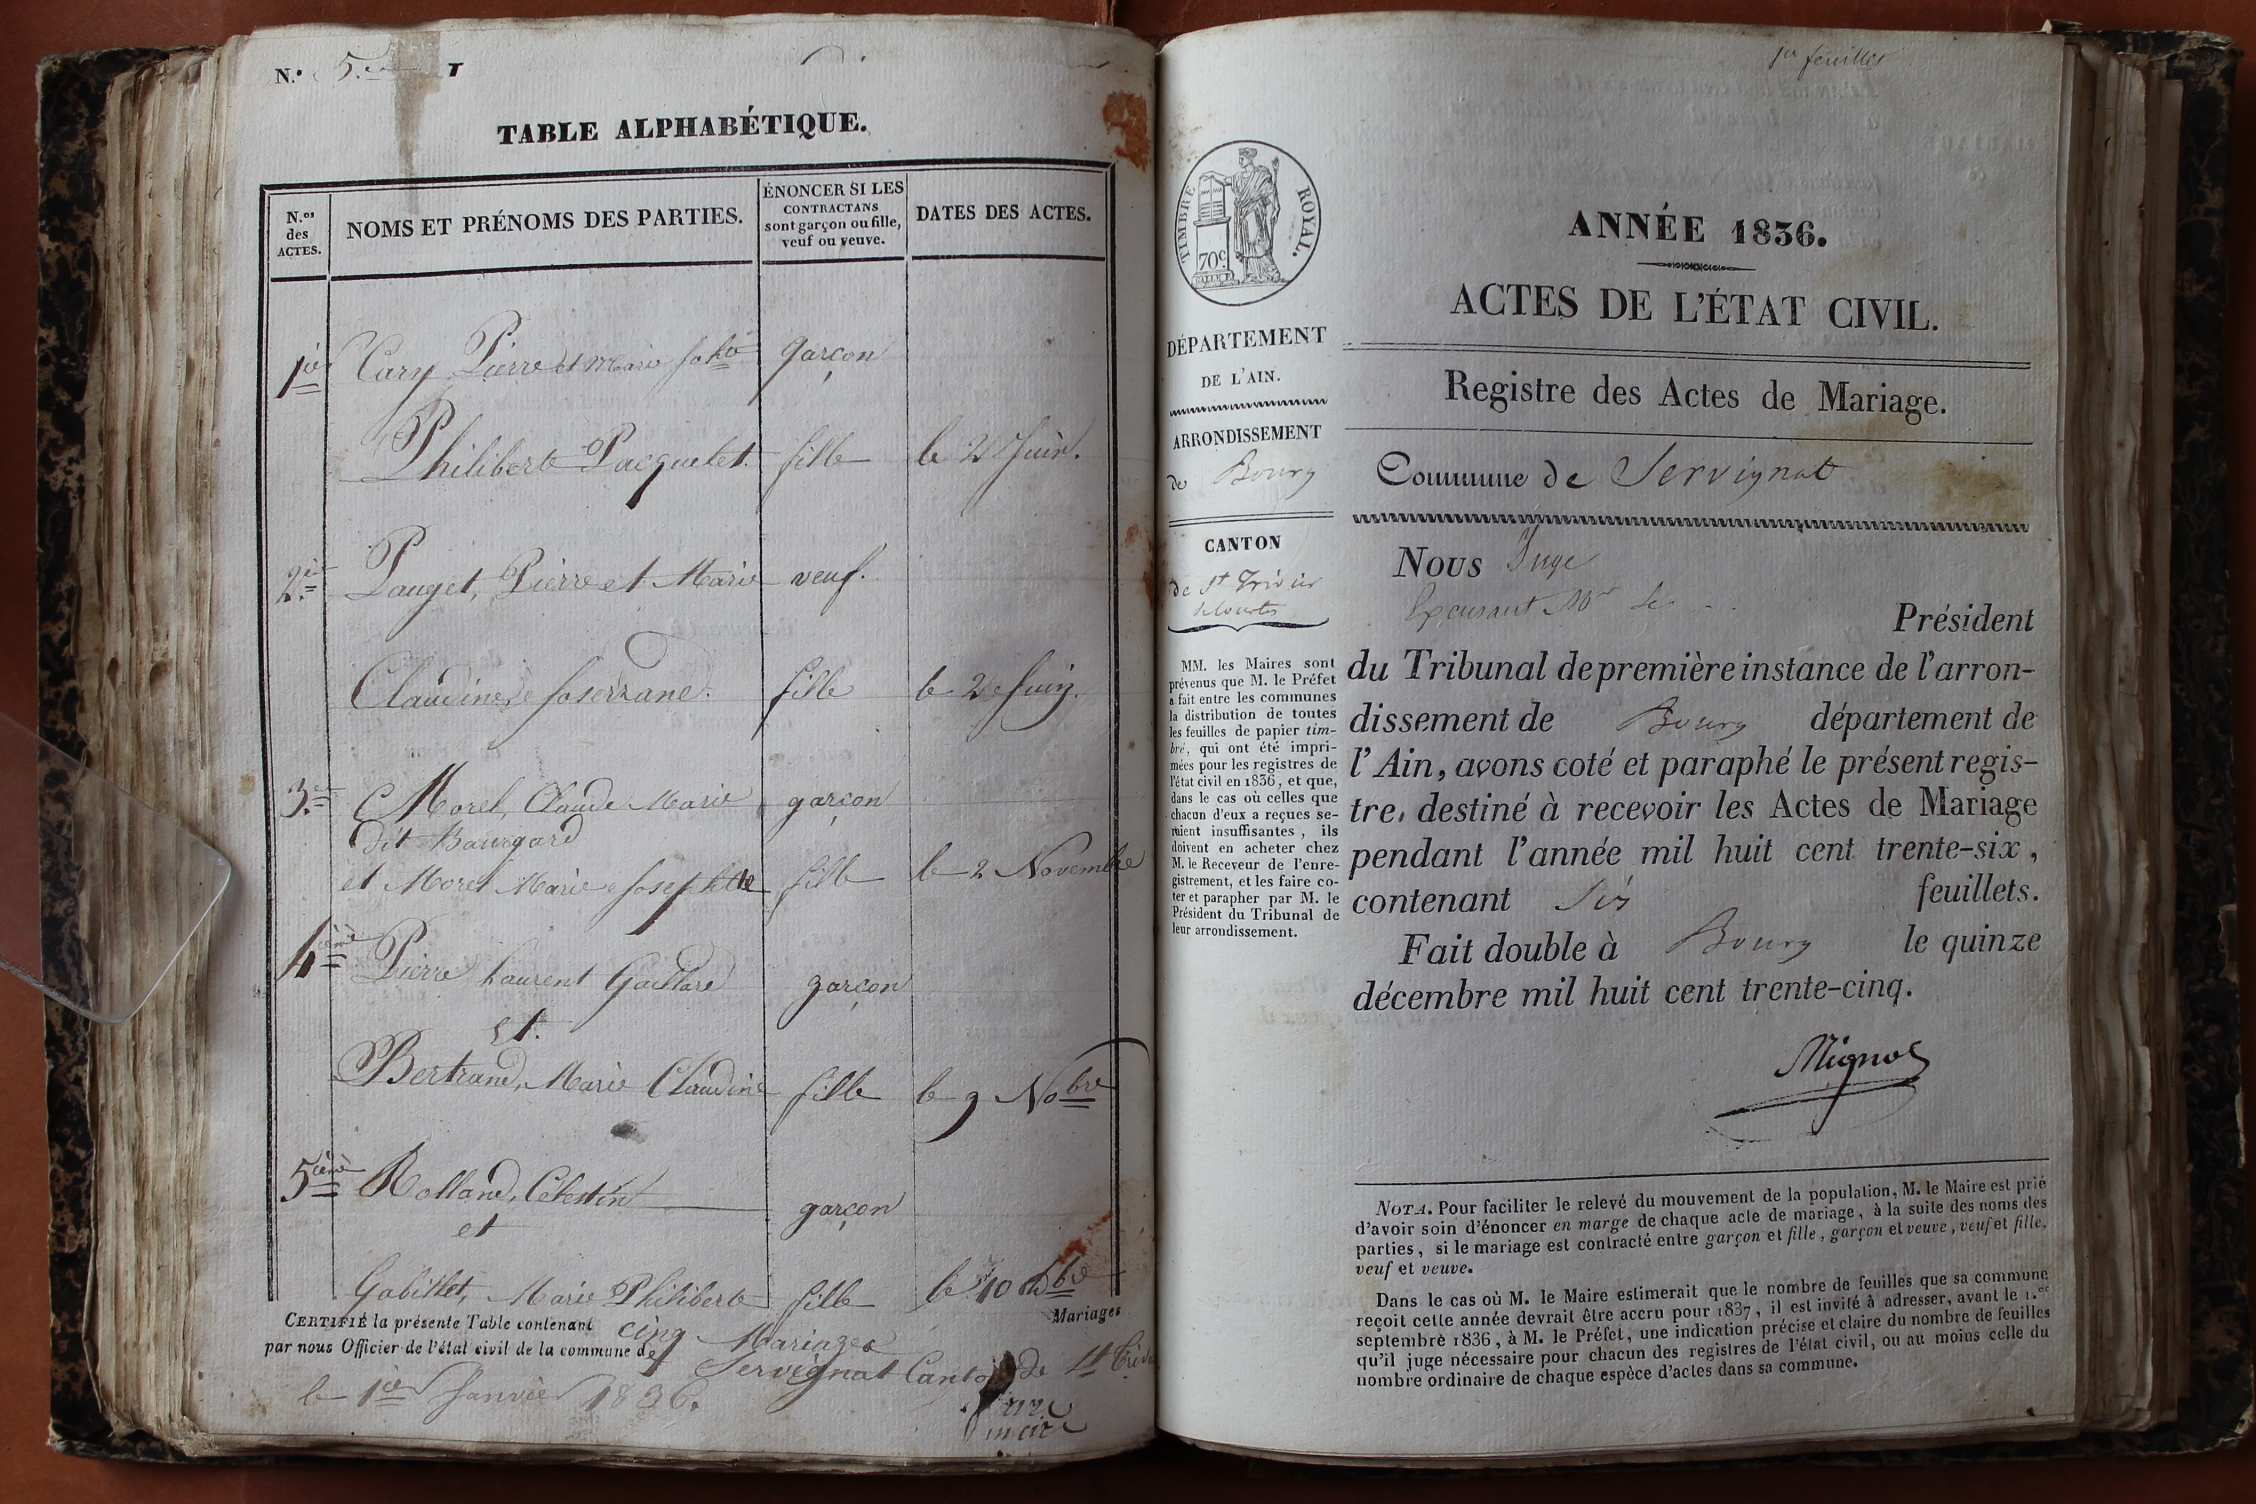 N.° 5.
TABLE ALPHABÉTIQUE.
N.os des ACTES.
NOMS ET PRÉNOMS DES PARTIES.
ÉNONCER SI LES
CONTRACTANS
sont garçon ou fille,
veuf ou veuve.
DATES DES ACTES.
Cary Pierre et Marie garçon
Philiberte Pacquelet. fille le 2 Juin.
2e Pauget, Pierre et Marie veuf.
Claudine Joserrand. fille le 2 Juin.
3e Morel, Claude Marie garçon
dit Baurgard
et Morel Marie Josephtte fille le 2 Novembre
4ième Pierre Laurent Gaillard garçon
et.
Bertrand, Marie Claudine fille le 9 Nobre
5ième Rolland, Célestin garçon
et
Gobillet, Marie Philiberte fille le 10
CERTIFIÉ la présente Table contenant cinq Mariages Mariages
par nous Officier de l'état civil de la commune de Servignat Canton de St
le 1er Janvier 1836.
maire
1er feuillet
TIMBRE ROYAL.
70c.
DÉPARTEMENT
DE L'AIN.
ARRONDISSEMENT
de Bourg
CANTON
de St Trivier
de Courtes
MM. les Maires sont
prévenus que M. le Préfet
a fait entre les communes
la distribution de toutes
les feuilles de papier tim-
bré, qui ont été impri-
mées pour les registres de
l'état civil en 1836, et que,
dans le cas où celles que
chacun d'eux a reçues se-
raient insuffisantes, ils
doivent en acheter chez
M. le Receveur de l'enre-
gistrement, et les faire co-
ter et parapher par M. le
Président du Tribunal de
leur arrondissement.
ANNÉE 1836.
ACTES DE L'ÉTAT CIVIL.
Registre des Actes de Mariage.
Commune de Servignat
Nous Juge
Excusant Mr le Président
du Tribunal de première instance de l'arron-
dissement de Bourg département de
l'Ain, avons coté et paraphé le présent regis-
tre, destiné à recevoir les Actes de Mariage
pendant l'année mil huit cent trente-six,
contenant Six feuillets.
Fait double à Bourg le quinze
décembre mil huit cent trente-cinq.
NOTA. Pour faciliter le relevé du mouvement de la population, M. le Maire est prié
d'avoir soin d'énoncer en marge de chaque acte de mariage, à la suite des noms des
parties, si le mariage est contracté entre garçon et fille, garçon et veuve, veuf et fille,
veuf et veuve.
Dans le cas où M. le Maire estimerait que le nombre de feuilles que sa commune
reçoit cette année devrait être accru pour 1837, il est invité à adresser, avant le 1.er
septembre 1836, à M. le Préfet, une indication précise et claire du nombre de feuilles
qu'il juge nécessaire pour chacun des registres de l'état civil, ou au moins celle du
nombre ordinaire de chaque espèce d'actes dans sa commune.